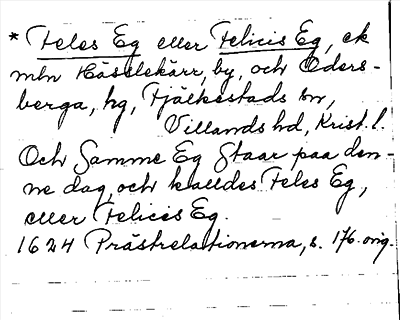 * Feles Eg eller Felicis Eg, ek
mln Hässlekärr, by, och Oders-
berga, hg, Fjälkestads sn,
Villands hd, Krist. l.
Och Samme Eg Staar paa den-
ne dag, och kalldes Feles Eg,
eller Felicis Eg.
1624 Prästrelationerna, s. 176. orig.